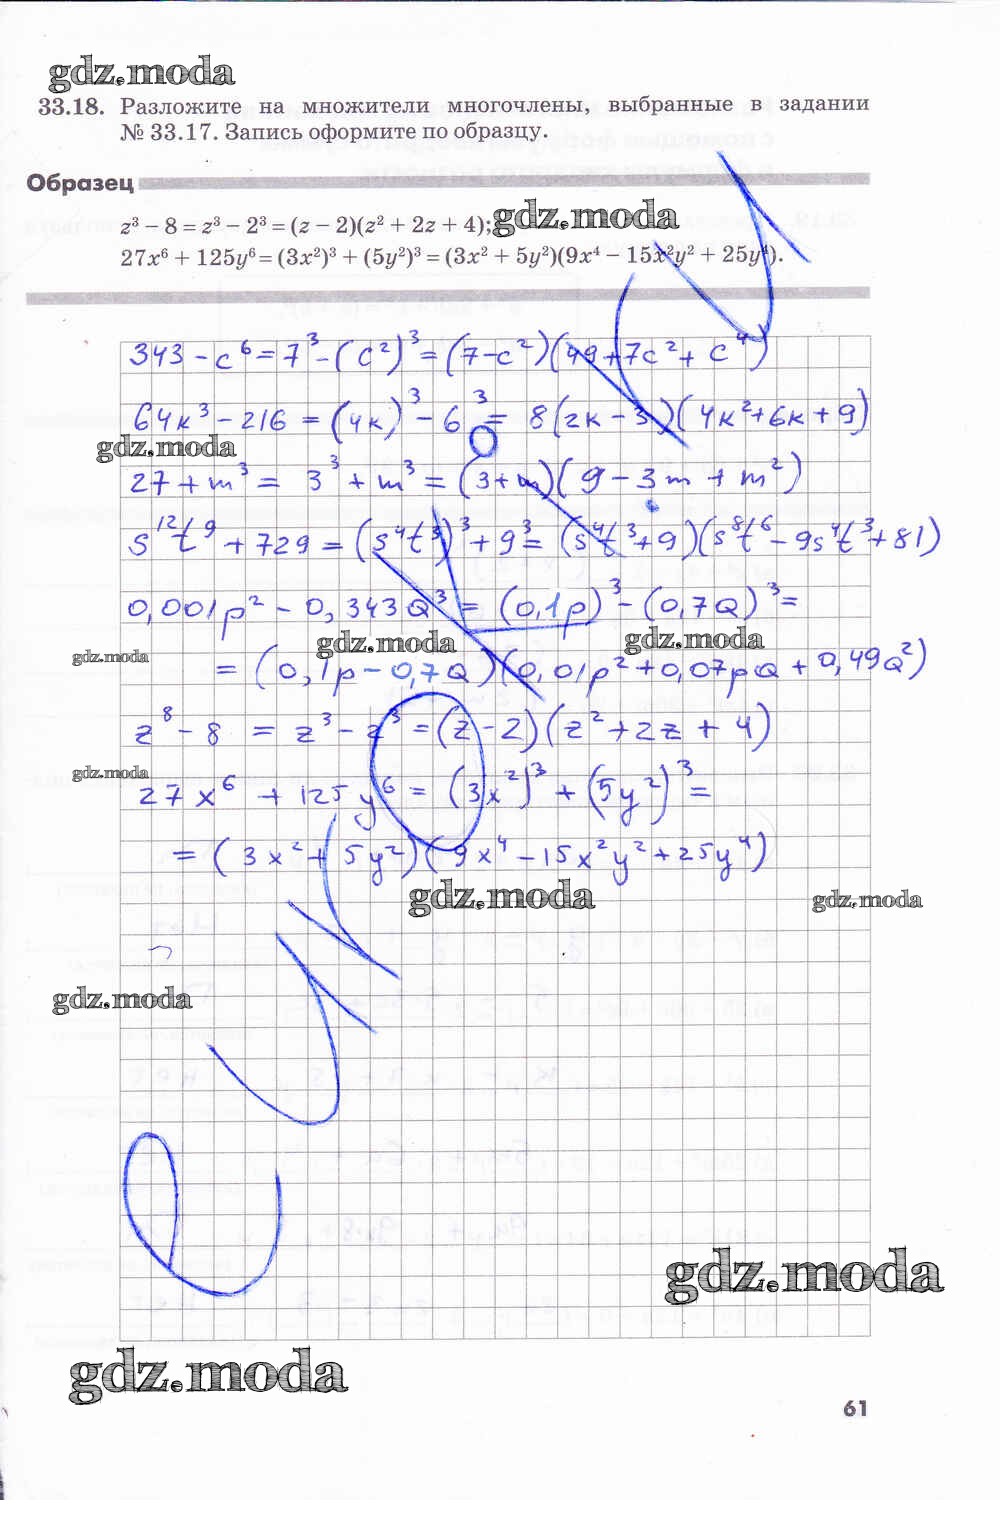 gdz.moda
33.18. Разложите на множители многочлены, выбранные в задании
№ 33.17. Запись оформите по образцу.
Образец
z³ − 8 = z³ − 2³ = (z − 2)(z² + 2z + 4); gdz.moda
27x⁶ + 125y⁶ = (3x²)³ + (5y²)³ = (3x² + 5y²)(9x⁴ − 15x²y² + 25y⁴).
343 - c⁶ = 7³ - (c²)³ = (7-c²)(49+7c²+c⁴)
64к³ - 216 = (4к)³ - 6³ = 8(2к-3)(4к²+6к+9)
gdz.moda
27 + m³ = 3³ + m³ = (3+m)(9-3m+m²)
s¹²t⁹ + 729 = (s⁴t³)³ + 9³ = (s⁴t³+9)(s⁸t⁶-9s⁴t³+81)
0,001p² - 0,343Q³ = (0,1p)³ - (0,7Q)³ =
gdz.moda gdz.moda gdz.moda
= (0,1p-0,7Q)(0,01p²+0,07pQ+0,49Q²)
z⁸ - 8 = z³ - z³ = (z-2)(z²+2z+4)
gdz.moda
27x⁶ + 125y⁶ = (3x²)³ + (5y²)³ =
= (3x²+5y²)(9x⁴-15x²y²+25y⁴)
gdz.moda gdz.moda
gdz.moda
gdz.moda
gdz.moda
61